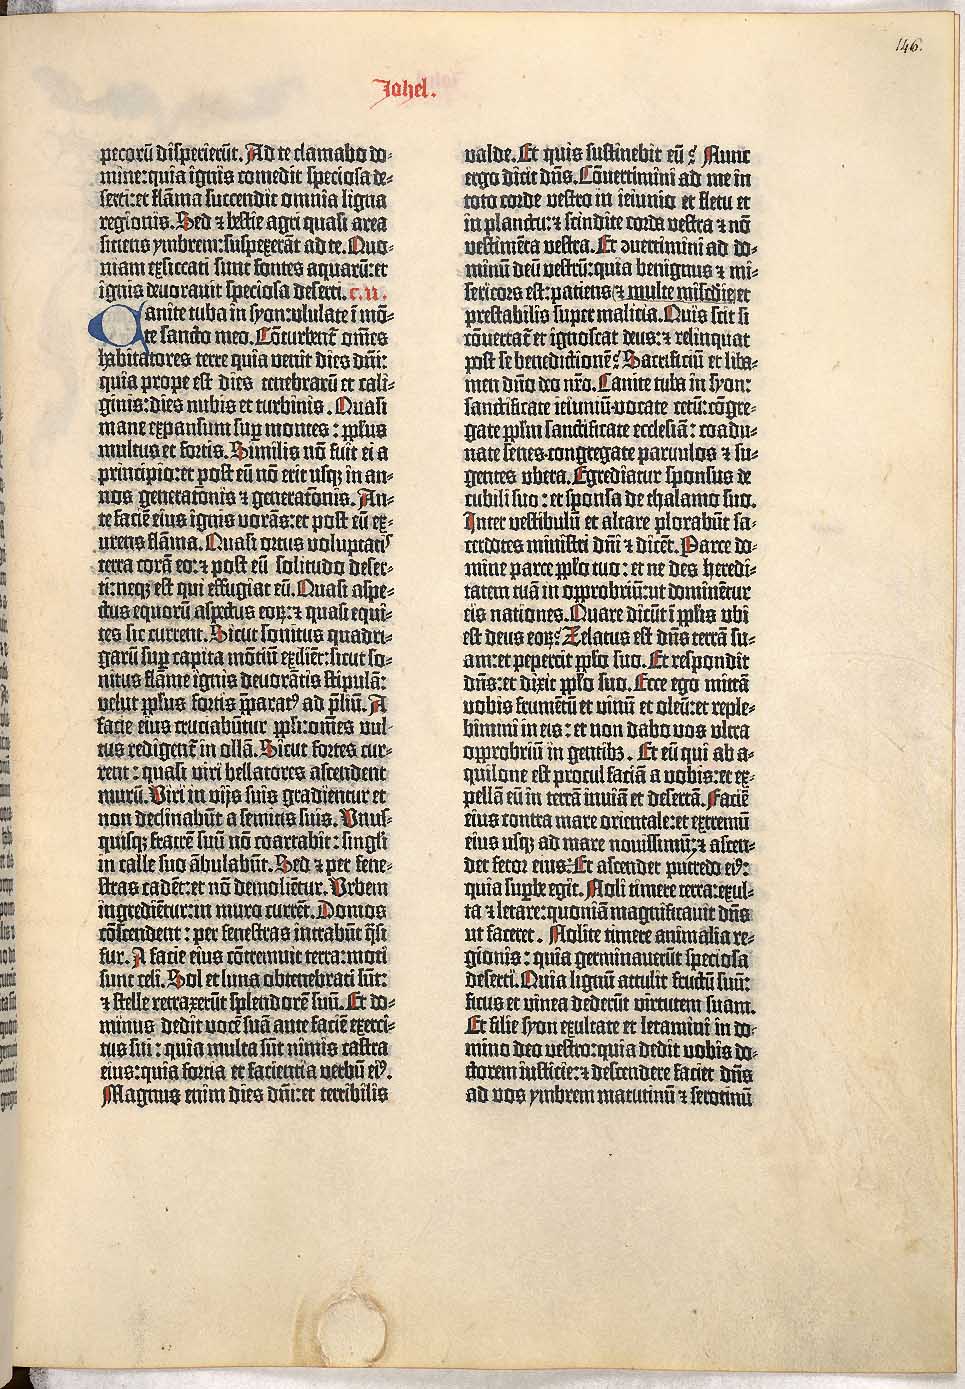 146.
Johel.
pecorū disperierūt. Ad te clamabo do-
mine: quia ignis comedit speciosa de-
serti: et flāma succendit omnia ligna
regionis. Sed ⁊ bestie agri quasi area
sitiens ymbrem: suspexerāt ad te. Quo-
niam exsiccati sunt fontes aquarū: et
ignis devoravit speciosa deserti. c. ii.
Canite tuba in syon: ululate ī mō-
te sancto meo. Cōturbent̄ om̄es
habitatores terre quia venit dies dn̄i:
quia prope est dies tenebrarū et cali-
ginis: dies nubis et turbinis. Quasi
mane expansum sup̄ montes: pp̄lus
multus et fortis. Similis nō fuit ei a
principio: et post eū nō erit usqꝫ in an-
nos generat̄onis ⁊ generat̄onis. An-
te faciē eius ignis vorās: et post eū ex-
urens flāma. Quasi ortus voluptatis
terra corā eo: ⁊ post eū solitudo deser-
ti: neqꝫ est qui effugiat eū. Quasi aspe-
ctus equorū aspectus eoꝝ: ⁊ quasi equi-
tes sic current. Sicut sonitus quadri-
garū sup̄ capita mōtiū exiliēt: sicut so-
nitus flāme ignis devorātis stipulā:
velut pp̄lus fortis p̄paratꝰ ad p̄liū. A
facie eius cruciabūtur pp̄li: om̄es vul-
tus redigent̄ in ollā. Sicut fortes cur-
rent: quasi viri bellatores ascendent
murū. Viri in vijs suis gradientur et
non declinabūt a semitis suis. Unus-
quisqꝫ fratrē suū nō coartabit: singl̄i
in calle suo ābulabūt. Sed ⁊ per fene-
stras cadēt: et nō demoliētur. Urbem
ingrediētur: in muro currēt. Domos
cōscendent: per fenestras intrabūt q̄si
fur. A facie eius cōtremuit terra: moti
sunt celi. Sol et luna obtenebrati sūt:
⁊ stelle retraxerūt splendorē suū. Et do-
minus dedit vocē suā ante faciē exerci-
tus sui: quia multa sūt nimis castra
eius: quia fortia et facientia verbū eiꝰ.
Magnus enim dies dn̄i: et terribilis
valde. Et quis sustinebit eū? Nunc
ergo dicit dn̄s. Cōvertimini ad me in
toto corde vestro in ieiunio et fletu et
in planctu: ⁊ scindite corda vestra ⁊ nō
vestimēta vestra. Et ꝯvertimini ad do-
minū deū vestrū: quia benignus ⁊ mi-
sericors est: patiens ⁊ multe mis̄cdie et
prestabilis super malicia. Quis scit si
cōvertat̄ et ignoscat deus: ⁊ relinquat
post se benedictionē? Sacrificiū et liba-
men dn̄o deo nr̄o. Canite tuba in syon:
sanctificate ieiuniū· vocate cetū: cōgre-
gate pp̄lm sanctificate ecclesiā: coadu-
nate senes· congregate parvulos ⁊ su-
gentes ubera. Egrediatur sponsus de
cubili suo: et sponsa de thalamo suo.
Inter vestibulū et altare plorabūt sa-
cerdotes ministri dn̄i ⁊ dicēt. Parce do-
mine parce pp̄lo tuo: et ne des heredi-
tatem tuā in opprobriū: ut dominētur
eis nationes. Quare dicūt ī pp̄lis ubi
est deus eoꝝ? Zelatus est dn̄s terrā su-
am: et pepercit pp̄lo suo. Et respondit
dn̄s: et dixit pp̄lo suo. Ecce ego mittā
vobis frumētū et vinū et oleū: et reple-
bimini in eis: et non dabo vos ultra
opprobriū in gentibꝫ. Et eū qui ab a-
quilone est procul faciā a vobis: et ex-
pellā eū in terrā inviā et desertā. Faciē
eius contra mare orientale: et extremū
eius usqꝫ ad mare novissimū: ⁊ ascen-
det fetor eius. Et ascendet putredo eiꝰ:
quia sup̄be egit. Noli timere terra: exul-
ta ⁊ letare: quoniā magnificavit dn̄s
ut faceret. Nolite timere animalia re-
gionis: quia germinaverūt speciosa
deserti. Quia lignū attulit fructū suū:
ficus et vinea dederūt virtutem suam.
Et filie syon exultate et letamini in do-
mino deo vestro: quia dedit vobis do-
ctorem iusticie: ⁊ descendere faciet dn̄s
ad vos ymbrem matutinū ⁊ serotinū